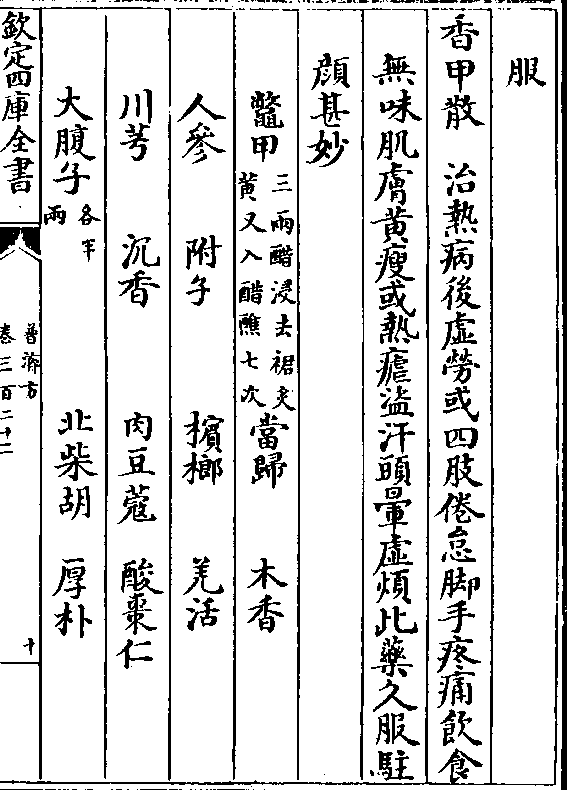 服
香甲散　治熱病後虛勞或四肢倦怠脚手疼痛飲食
無味肌膚黃瘦或熱瘧盜汗頭暈虛煩比藥久服駐
顔甚妙
鼈甲三兩醋浸去裙炙黄又入醋醮七次　當歸　木香
人參　附子　檳榔　羌活
川芎　沉香　肉豆蔻　酸棗仁
大腹子各半兩　北柴胡　厚朴
欽定四庫全書
普濟方
卷三百二十二
十